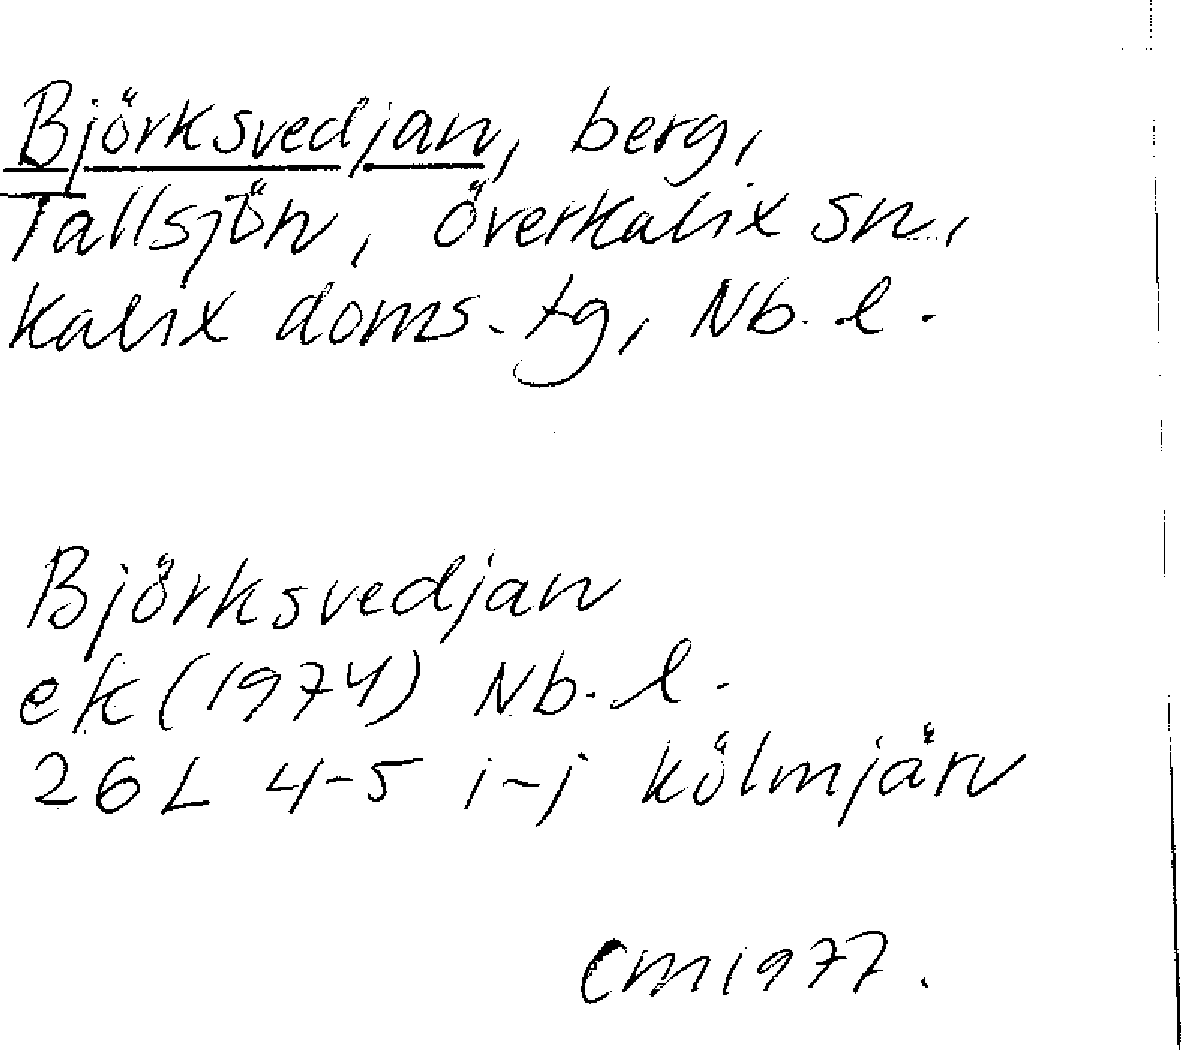 Björksvedjan, berg,
Tallsjön, Överkalix sn,
Kalix doms. tg, Nb. l.
Björksvedjan
ek (1974) Nb. l.
26 L 4-5 i-j Kölmjärv
CM 1977.